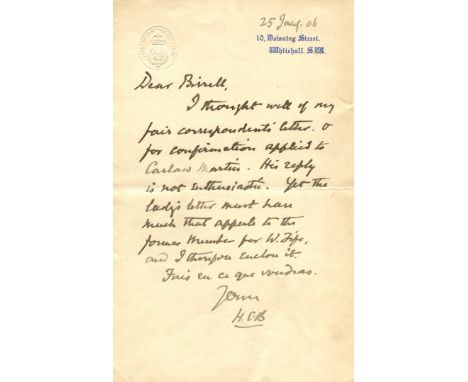 25 Jany. 06
10, Downing Street,
Whitehall. S.W.
Dear Birrell,
I thought well of my
fair correspondent's letter. &
for confirmation applied to
Carlaw Martin. His reply
is not enthusiastic. Yet the
lady's letter must have
much that appeals to the
former Member for W. Fife,
and I therefore enclose it.
Fais ce que voudras.
Yours
H.C.B